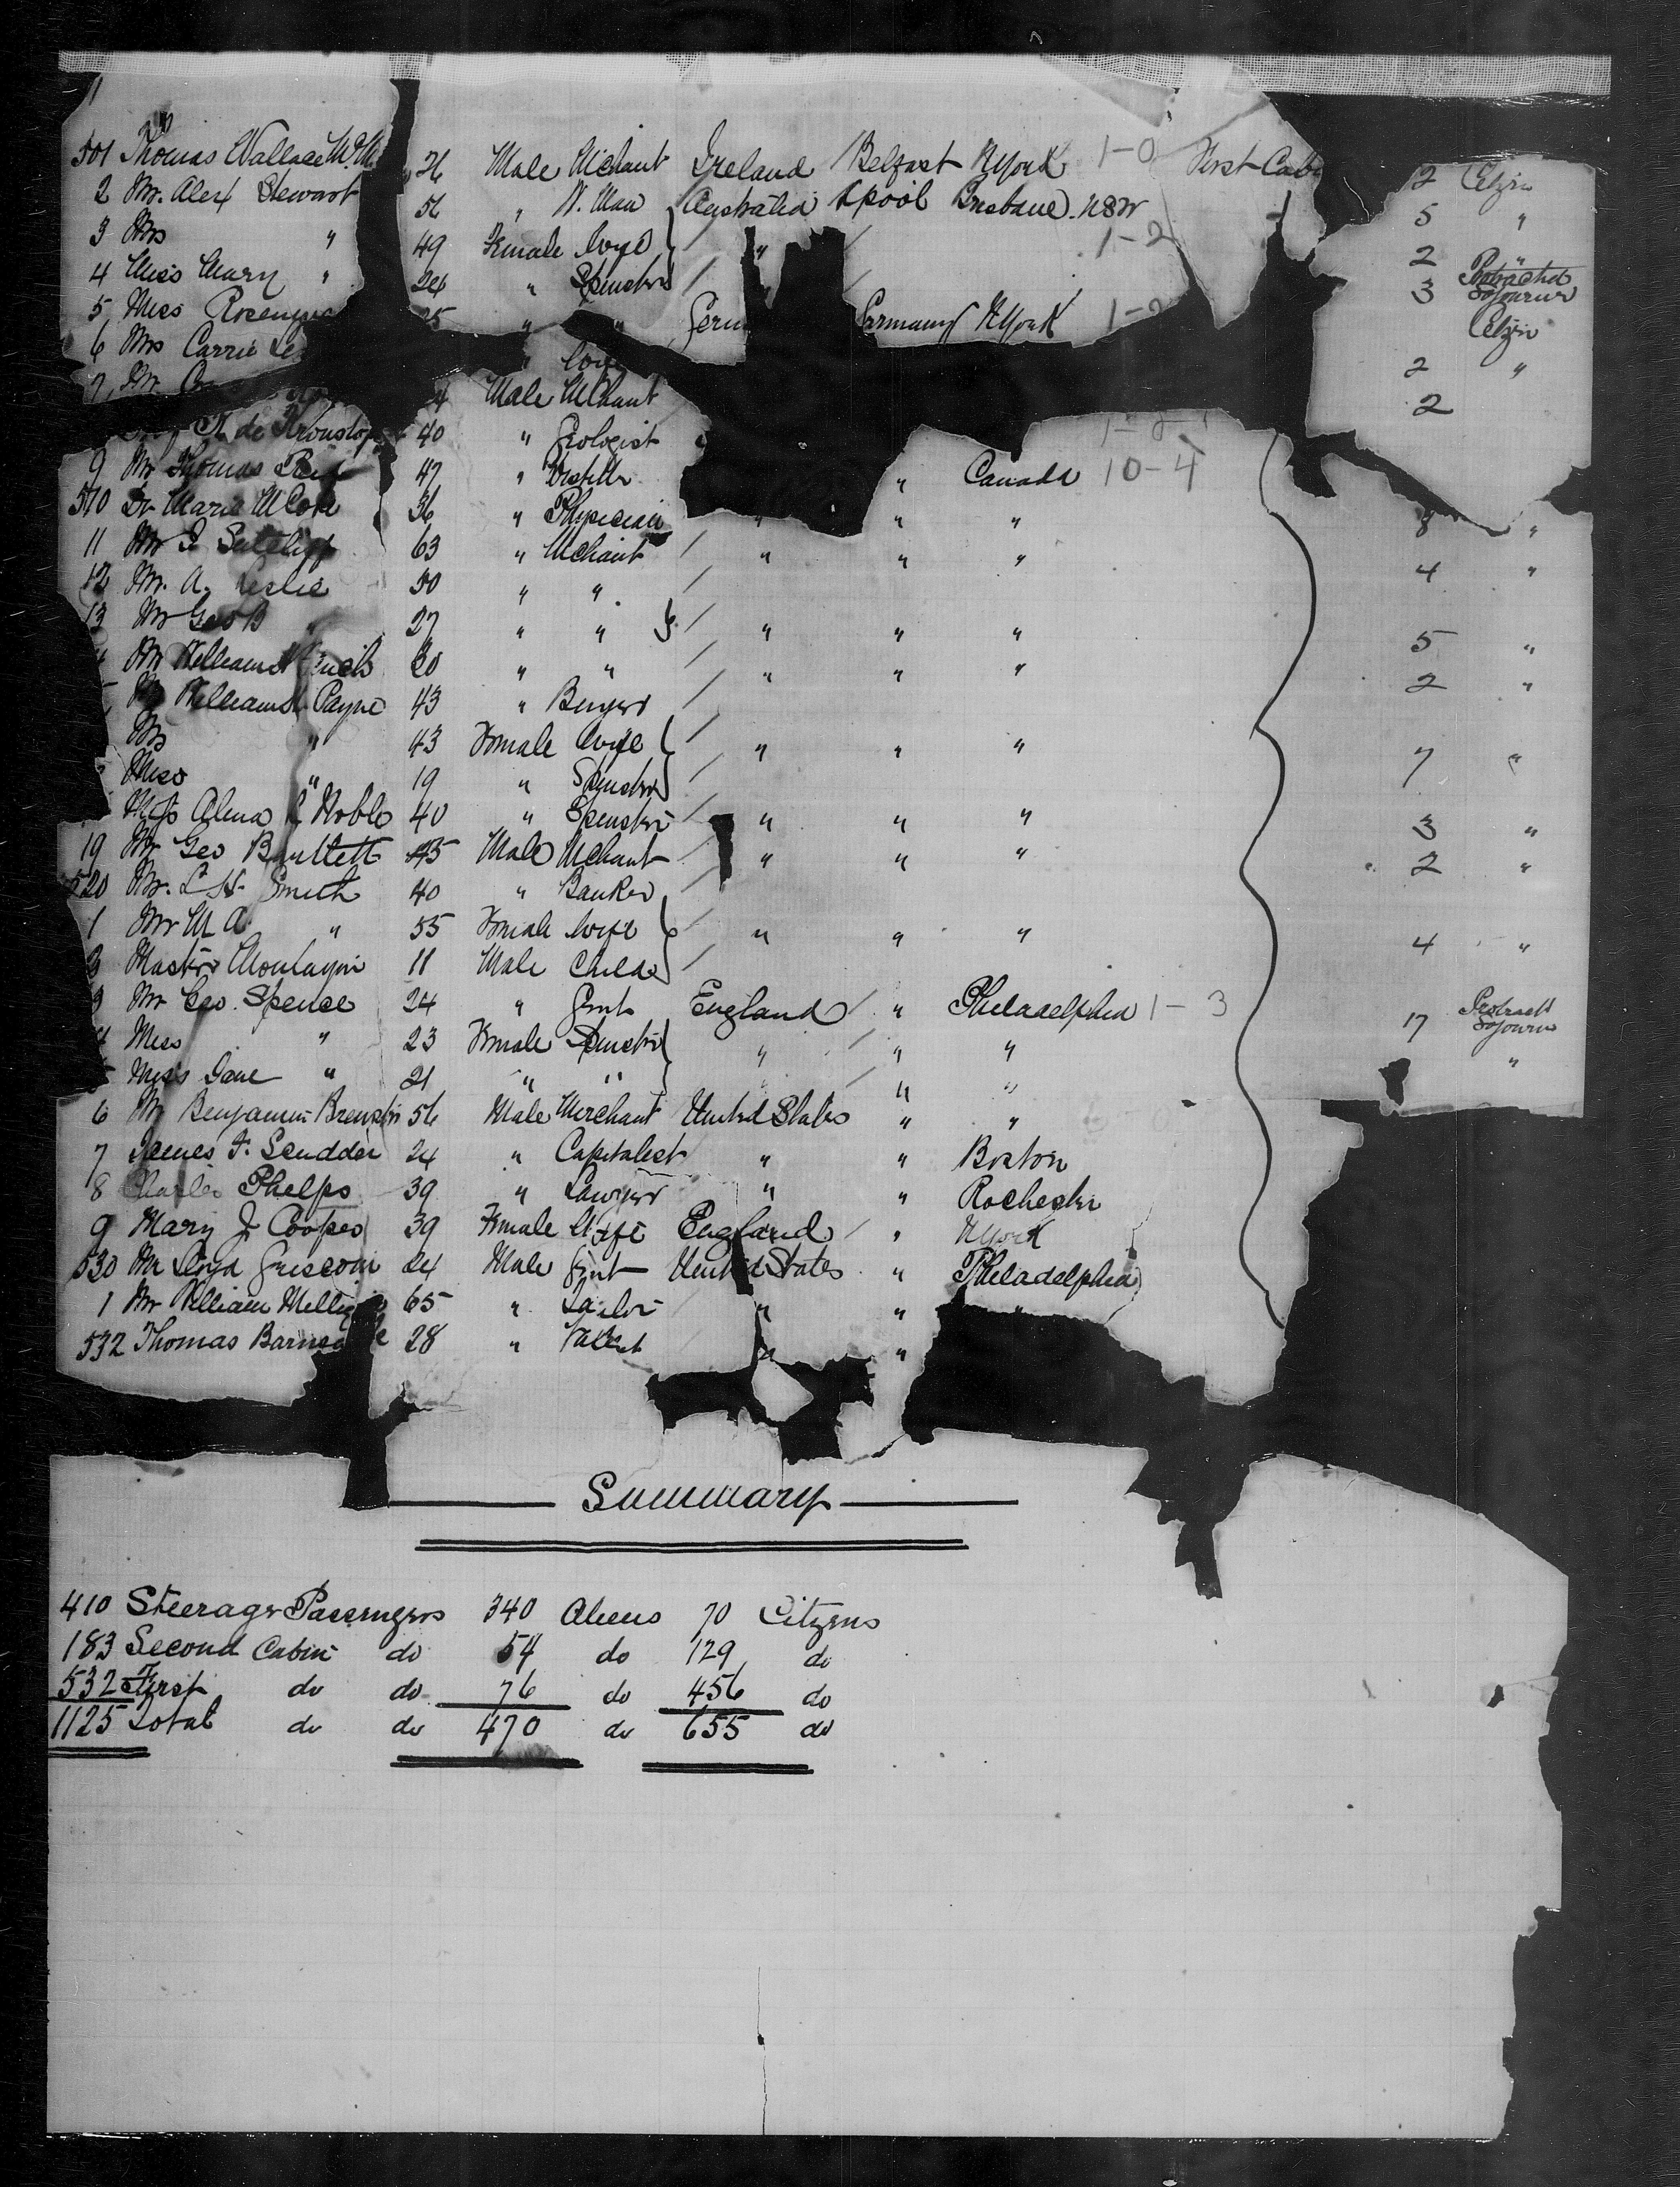 501 Thomas Wallace 26 Male Mchant Ireland Belfast NYork 1-0 First Cab 2 Citzn
2 Mr. Alex Stewart 56 " N. Man Australia Lpool Brisbane. NSW 5 "
3 Mrs " 49 Female Wife " 1-2 2 "
4 Miss Mary " 24 " Spinster 3 Protracted Sojourn
5 Miss 25 " " Germany NYork Citzn
6 Mrs Carrie 2 "
7 Mr Male Mchant 2
de 40 " Geologist
9 Mr Thomas Reid 47 " " Canada 10-4
510 Dr Marie 36 " Physician " " " 8 "
11 Mr J Sutcliff 63 " Mchant " " " 4 "
12 Mr. A. Leslie 50 " "
13 Mr Geo B " 27 " " " " " 5 "
Mr William 30 " " " " " 2 "
Mr William Payne 43 " Buyer
Mrs " 43 Female Wife " " " 7 "
Miss " 19 " Spinster
Miss Alena Noble 40 " Spinster " " " 3 "
19 Mr Geo Bartlett 45 Male Mchant " " " 2 "
520 Mr. L. H. Smith 40 " Banker
1 Mr M A " 55 Female Wife " " " 4 "
Master Montague 11 Male Child
3 Mr Geo. Spence 24 " Gent England " Philadelphia 1-3 17 Protract Sojourn
4 Miss " 23 Female Spinster " " " "
5 Miss Jane " 21 " " " " "
6 Mr Benjamin Brewster 56 Male Merchant United States " "
7 James F. Scudder 24 " Capitalist " " Boston
8 Charles Phelps 39 " Lawyer " " Rochester
9 Mary J Cooper 39 Female Wife England " NYork
530 Mr Lloyd Griscom 24 Male Gent United States " Philadelphia
1 Mr William 65 " Tailor " " "
532 Thomas 28 " Valet " "
Summary
410 Steerage Passengers 340 Aliens 70 Citizens
183 Second Cabin do 54 do 129 do
532 First do do 76 do 456 do
1125 Total do do 470 do 655 do